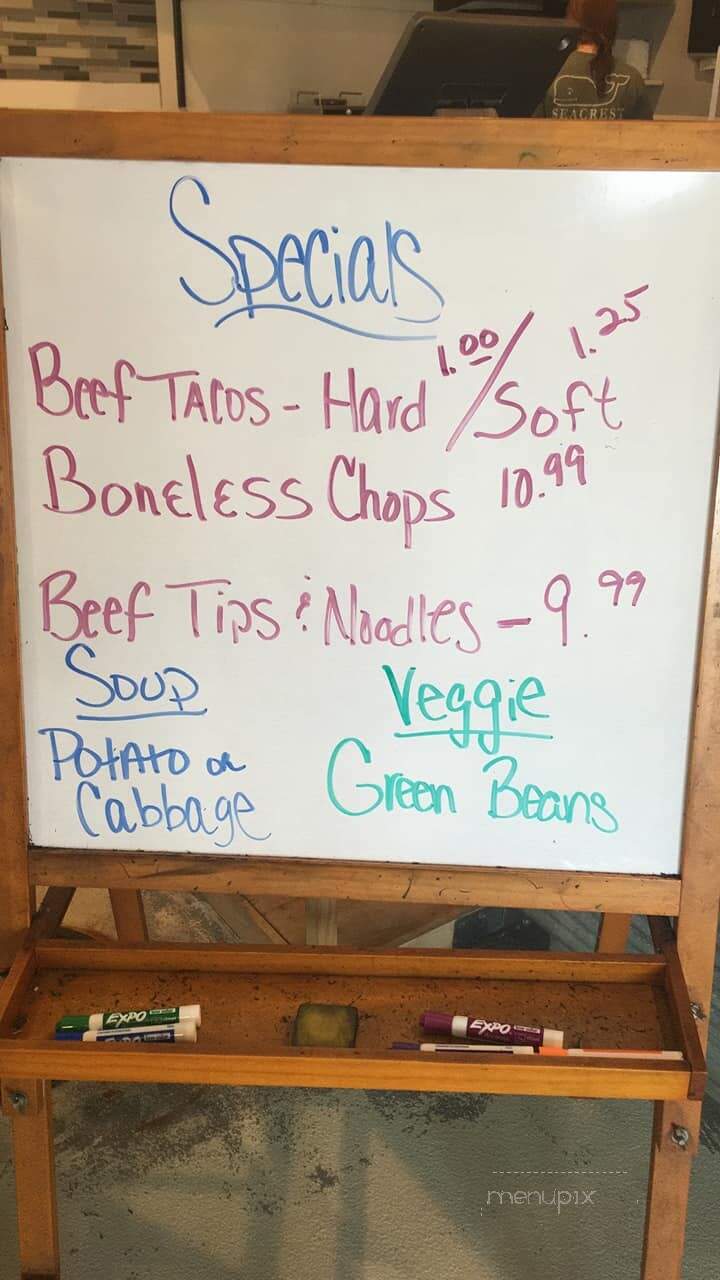 SEACREST
Specials
Beef TACOS - Hard 1.00 / Soft 1.25
Boneless Chops 10.99
Beef Tips & Noodles - 9.99
Soup
Potato or
Cabbage
Veggie
Green Beans
EXPO
EXPO
EXPO
menupix